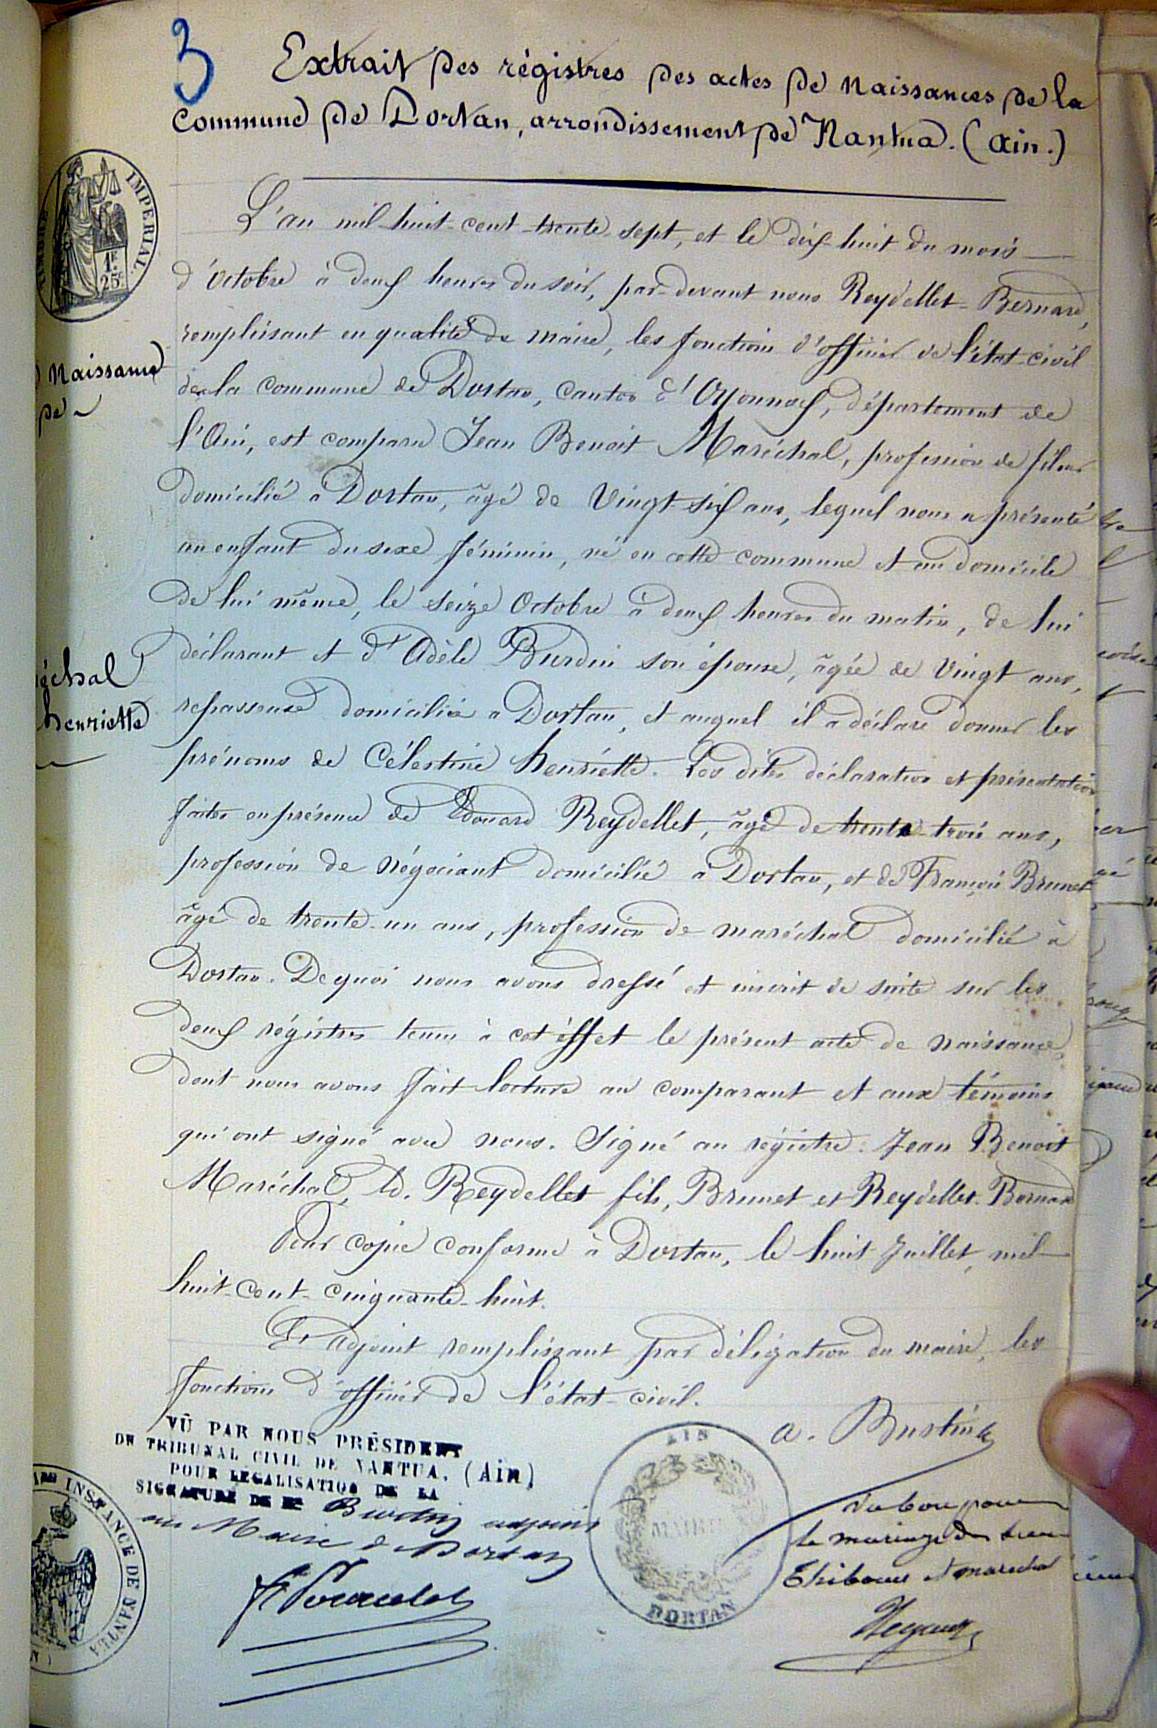 3
Extrait des régistres des actes de naissances de la
Commune de Dortan, arrondissement de Nantua. (Ain.)
IMPERIAL
1F.
25c
Naissance
de
L'an mil-huit-cent-trente-sept, et le dix-huit du mois
d'octobre à deux heures du soir, par-devant nous Reydellet-Bernard,
remplissant en qualité de maire, les fonctions d'officier de l'état-civil
de la commune de Dortan, canton d'Oyonnax, département de
l'Ain, est comparu Jean Benoit Maréchal, profession de fileur
domicilié à Dortan, âgé de vingt-six ans, lequel nous a présenté
un enfant du sexe féminin, né en cette commune et au domicile
de lui même, le seize Octobre à deux heures du matin, de lui
déclarant et d'Adèle Burdin son épouse, âgée de vingt ans,
échal
henriette
repasseuse domiciliée à Dortan, et auquel il a déclaré donner les
prénoms de Célestine henriette. Les dites déclaration et présentation
faites en présence de Edouard Reydellet, âgé de trente-trois ans,
profession de négociant domicilié à Dortan, et de François Brunet
âgé de trente-un ans, profession de maréchal domicilié à
Dortan. De quoi nous avons dressé et inscrit de suite sur les
deux régistres tenus à cet éffet le présent acte de naissance
dont nous avons fait lecture au comparant et aux témoins
qui ont signé avec nous. Signé au régistre: Jean Benoit
Maréchal, Ed. Reydellet fils, Brunet et Reydellet-Bernard
Pour copie conforme à Dortan, le huit Juillet, mil-
huit-cent-cinquante-huit.
Er adjoint remplissant par délégation du maire, les
fonctions d'officier de l'état-civil.
VÛ PAR NOUS PRÉSIDENT
DU TRIBUNAL CIVIL DE NANTUA, (Ain)
POUR LEGALISATION DE LA
SIGNATURE DE Mr Burdin adjoint
au Maire de Dortan
INSTANCE DE NANTUA
AIN
MAIRIE
DORTAN
Vu bon pour
le mariage des sieur
Thiboux et marechal